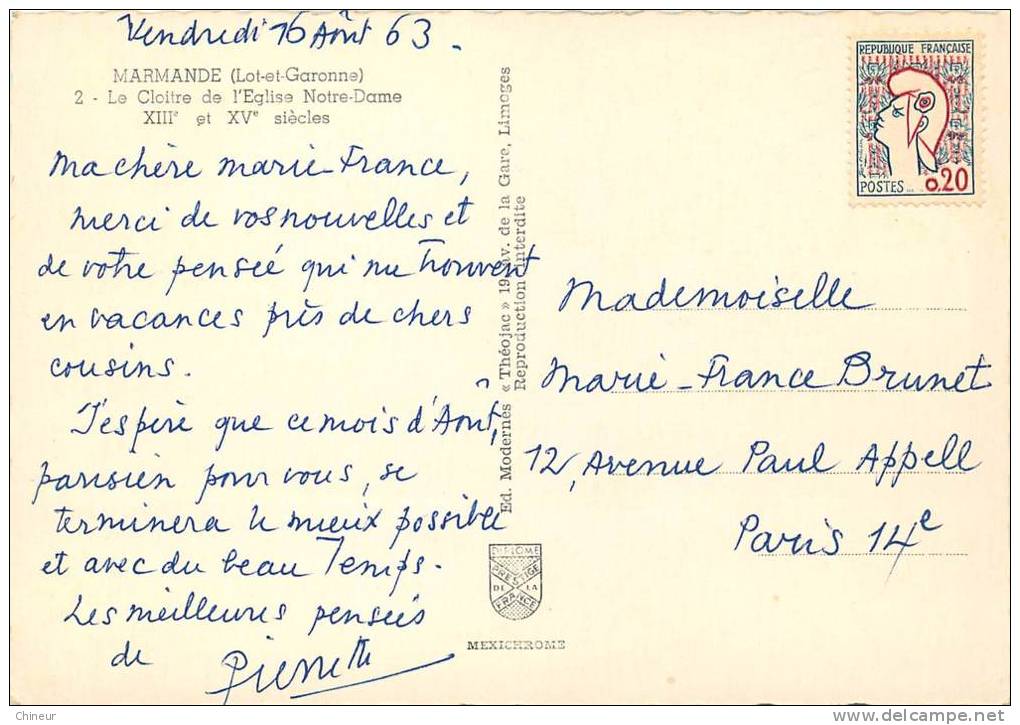 Vendredi 16 Août 63.
MARMANDE (Lot-et-Garonne)
2 - Le Cloitre de l'Eglise Notre-Dame
XIIIe et XVe siècles
Ma chère Marie-France,
merci de vos nouvelles et
de votre pensée qui me trouvent
en vacances près de chers
cousins.
J'espère que ce mois d'Août,
parisien pour vous, se
terminera le mieux possible
et avec du beau Temps.
Les meilleures pensées
de Pierrette
Ed. Modernes « Théojac » 19, av. de la Gare, Limoges
Reproduction interdite
DIPLOME
PRESTIGE
DE LA
FRANCE
MEXICHROME
REPUBLIQUE FRANÇAISE
POSTES
0,20
Mademoiselle
Marie-France Brunet
12, Avenue Paul Appell
Paris 14e
Chineur
delcampe.net